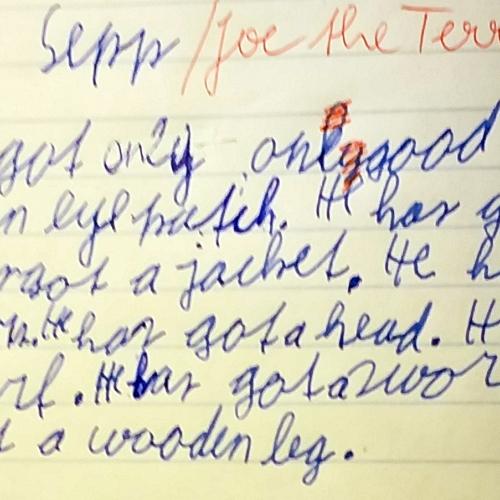 Sepp / Joe the Terr
got only only good
n eyepatch. He has g
got a jacket. He h
He has got a head. H
rt. He has got a swor
t a wooden leg.